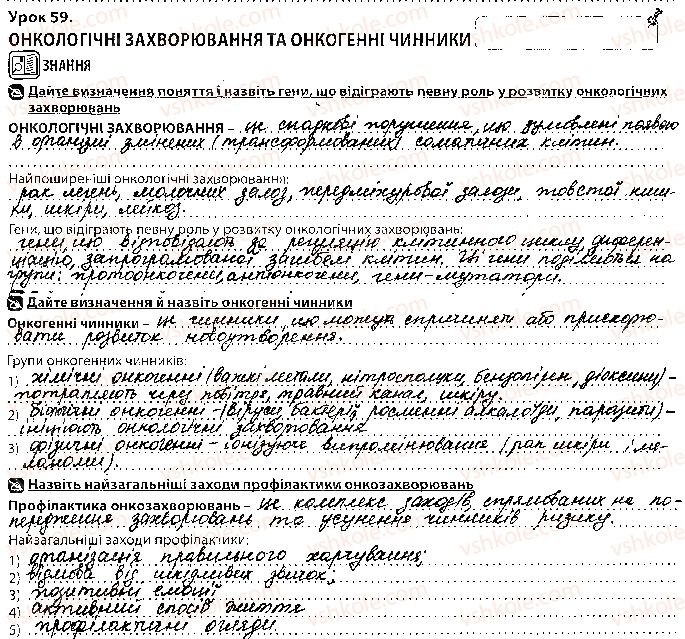 Урок 59.
ОНКОЛОГІЧНІ ЗАХВОРЮВАННЯ ТА ОНКОГЕННІ ЧИННИКИ
ЗНАННЯ
Дайте визначення поняття і назвіть гени, що відіграють певну роль у розвитку онкологічних
захворювань
ОНКОЛОГІЧНІ ЗАХВОРЮВАННЯ – це спадкові порушення, що зумовлені появою
в організмі змінених (трансформованих) соматичних клітин.
Найпоширеніші онкологічні захворювання:
рак легень, молочних залоз, передміхурової залози, товстої киш-
ки, шкіри, лейкоз.
Гени, що відіграють певну роль у розвитку онкологічних захворювань:
гени, що відповідають за регуляцію клітинного циклу, диферен-
ціацію, запрограмованої загибелі клітин. Ці гени поділяються на
групи: протоонкогени, антионкогени, гени-мутатори.
Дайте визначення й назвіть онкогенні чинники
Онкогенні чинники – це чинники, що можуть спричиняти або прискорю-
вати розвиток новоутворення.
Групи онкогенних чинників:
1) хімічні онкогенні (важкі метали, нітросполуки, бензопірен, діоксини) –
потрапляють через повітря, травний канал, шкіру.
2) біологічні онкогенні – (віруси, бактерії, рослинні алкалоїди, паразити) –
ініціюють онкологічні захворювання
3) фізичні онкогенні – іонізуюче випромінювання (рак шкіри і ме-
ланоми).
Назвіть найзагальніші заходи профілактики онкозахворювань
Профілактика онкозахворювань – це комплекс заходів, спрямованих на по-
передження захворювань та усунення чинників ризику.
Найзагальніші заходи профілактики:
1) організація правильного харчування;
2) відмова від шкідливих звичок,
3) позитивні емоції
4) активний спосіб життя
5) профілактичні огляди.
vshkole.com